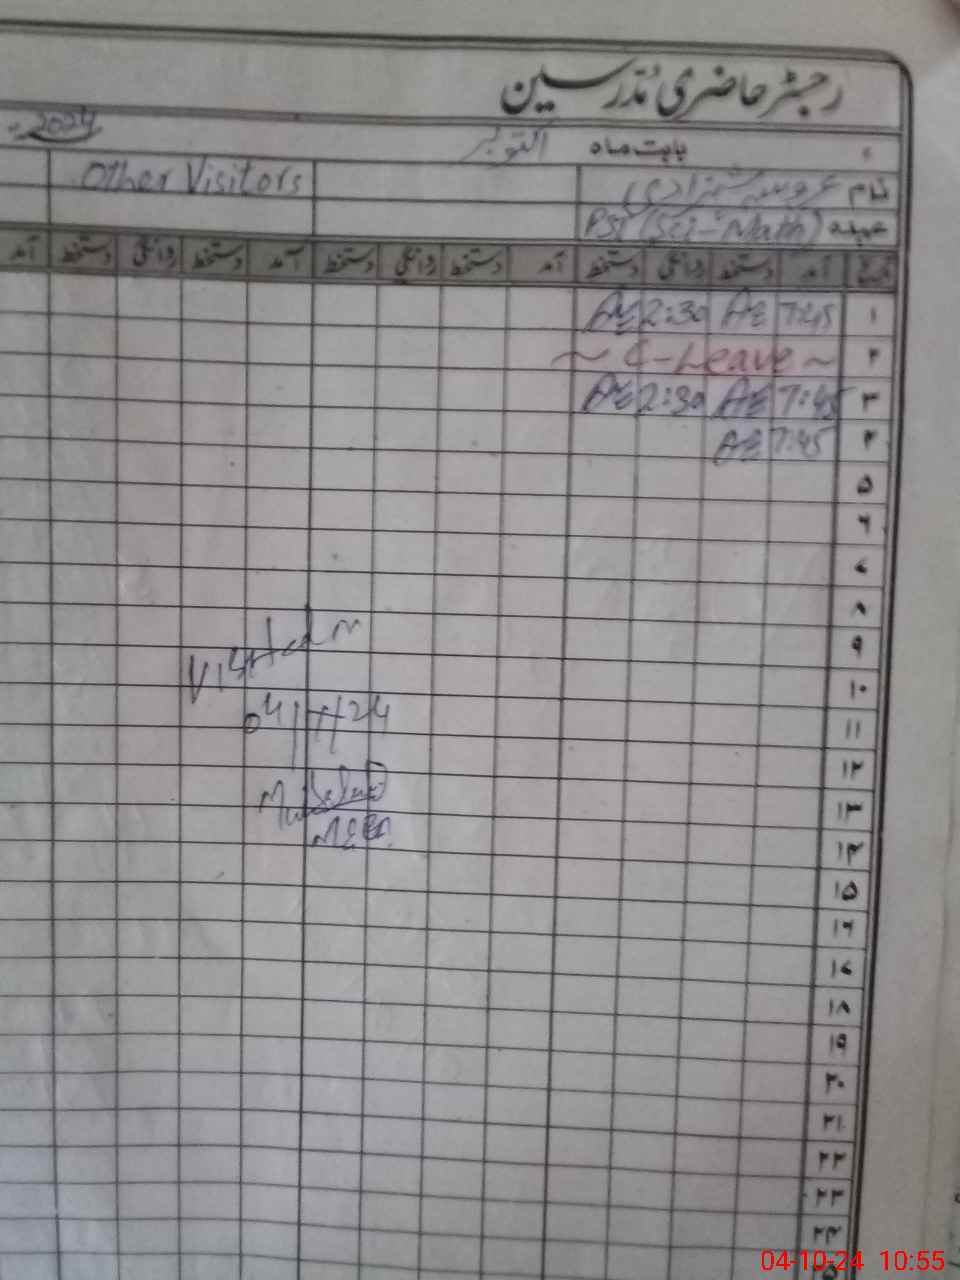 رجسٹر حاضری مُدرسین
بابت ماہ اکتوبر 2024
نام عروسہ شہزادی Other Visitors
عہدہ PST (Sci-Math)
تاریخ آمد دستخط روانگی دستخط آمد دستخط روانگی دستخط آمد دستخط روانگی دستخط آمد
۱ 7:45 AE 2:30 AE
۲ ~ C-Leave ~
۳ 7:45 AE 2:30 AE
۴ 7:45 AE
۵
۶
۷
۸
۹
Visited
۱۰
۱۱
۱۲
۱۳
MEA
۱۴
۱۵
۱۶
۱۷
۱۸
۱۹
۲۰
۲۱
۲۲
۲۳
۲۴
04-10-24 10:55